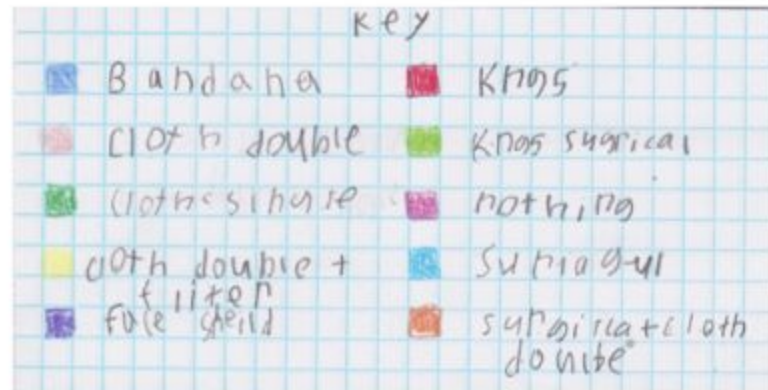 key
Bandana
cloth double
clothesingle
cloth double +
filter
face sheild
Kn95
Kn95 sugrical
nothing
surgical + cloth
double